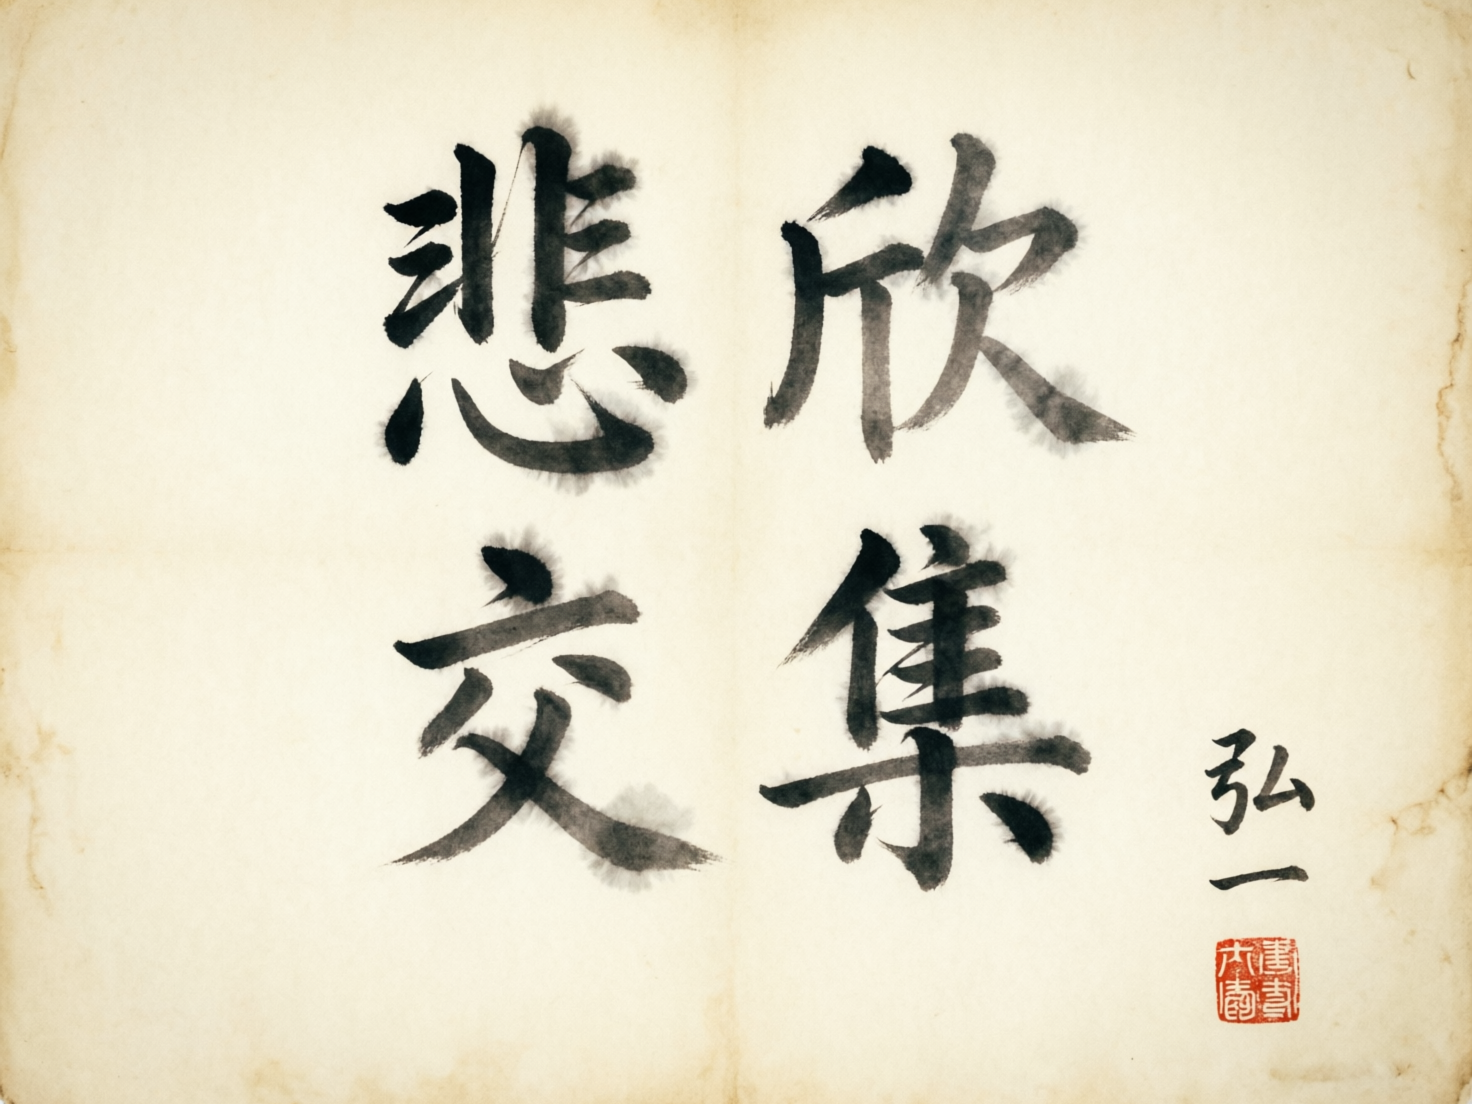 悲欣
交集
弘一